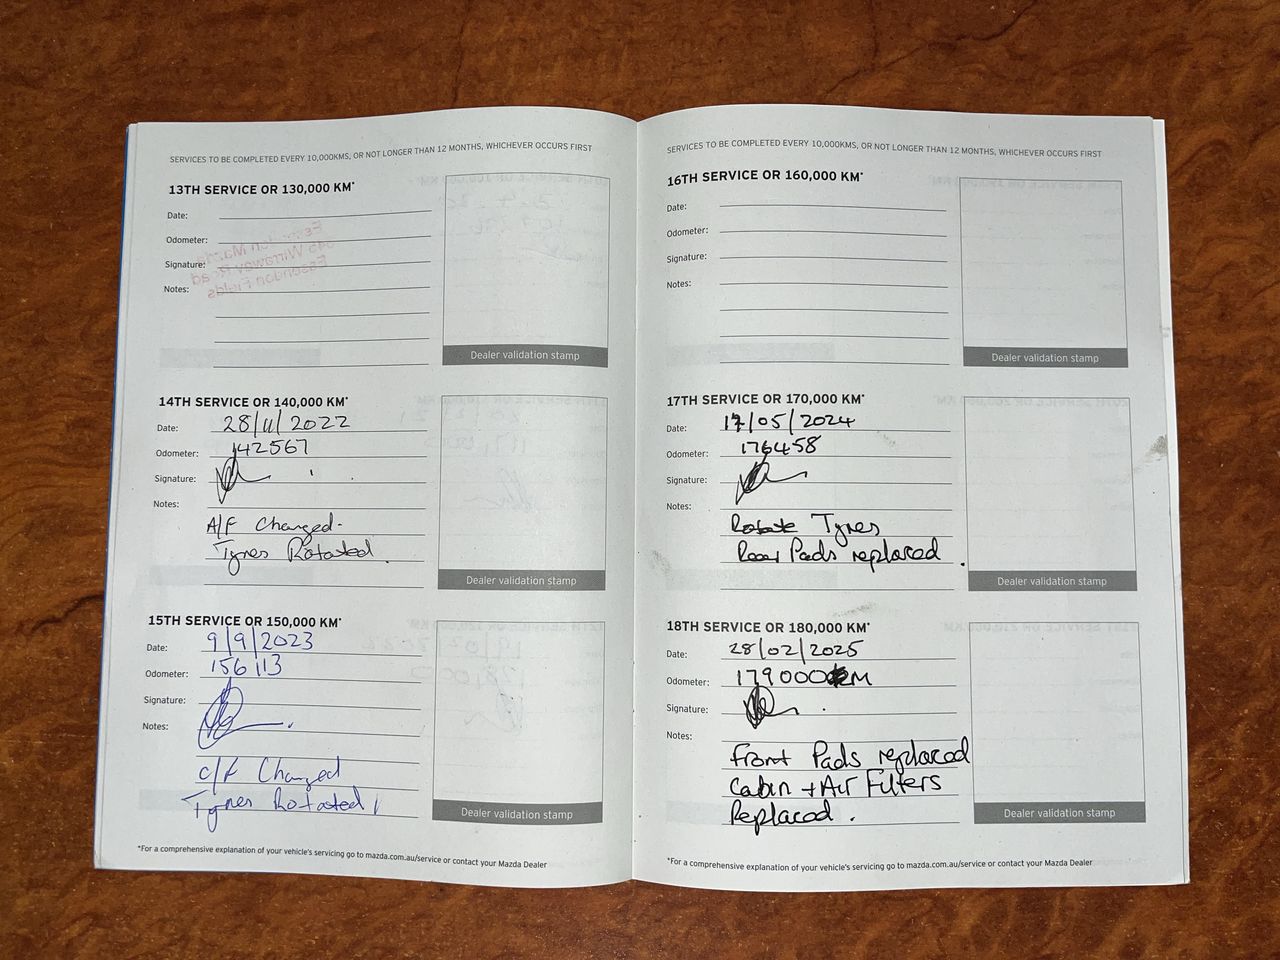 SERVICES TO BE COMPLETED EVERY 10,000KMS, OR NOT LONGER THAN 12 MONTHS, WHICHEVER OCCURS FIRST
13TH SERVICE OR 130,000 KM*
Date:
Odometer:
Signature:
Notes:
Dealer validation stamp
14TH SERVICE OR 140,000 KM*
Date: 28/11/2022
Odometer: 142567
Signature:
Notes:
A/F Changed.
Tyres Rotated.
Dealer validation stamp
15TH SERVICE OR 150,000 KM*
Date: 9/9/2023
Odometer: 156113
Signature:
Notes:
C/F Changed
Tyres Rotated
Dealer validation stamp
*For a comprehensive explanation of your vehicle's servicing go to mazda.com.au/service or contact your Mazda Dealer
SERVICES TO BE COMPLETED EVERY 10,000KMS, OR NOT LONGER THAN 12 MONTHS, WHICHEVER OCCURS FIRST
16TH SERVICE OR 160,000 KM*
Date:
Odometer:
Signature:
Notes:
Dealer validation stamp
17TH SERVICE OR 170,000 KM*
Date: 17/05/2024
Odometer: 176458
Signature:
Notes:
Rotate Tyres
Rear Pads replaced.
Dealer validation stamp
18TH SERVICE OR 180,000 KM*
Date: 28/02/2025
Odometer: 179000KM
Signature:
Notes:
Front Pads replaced
Cabin + Air Filters
Replaced.
Dealer validation stamp
*For a comprehensive explanation of your vehicle's servicing go to mazda.com.au/service or contact your Mazda Dealer